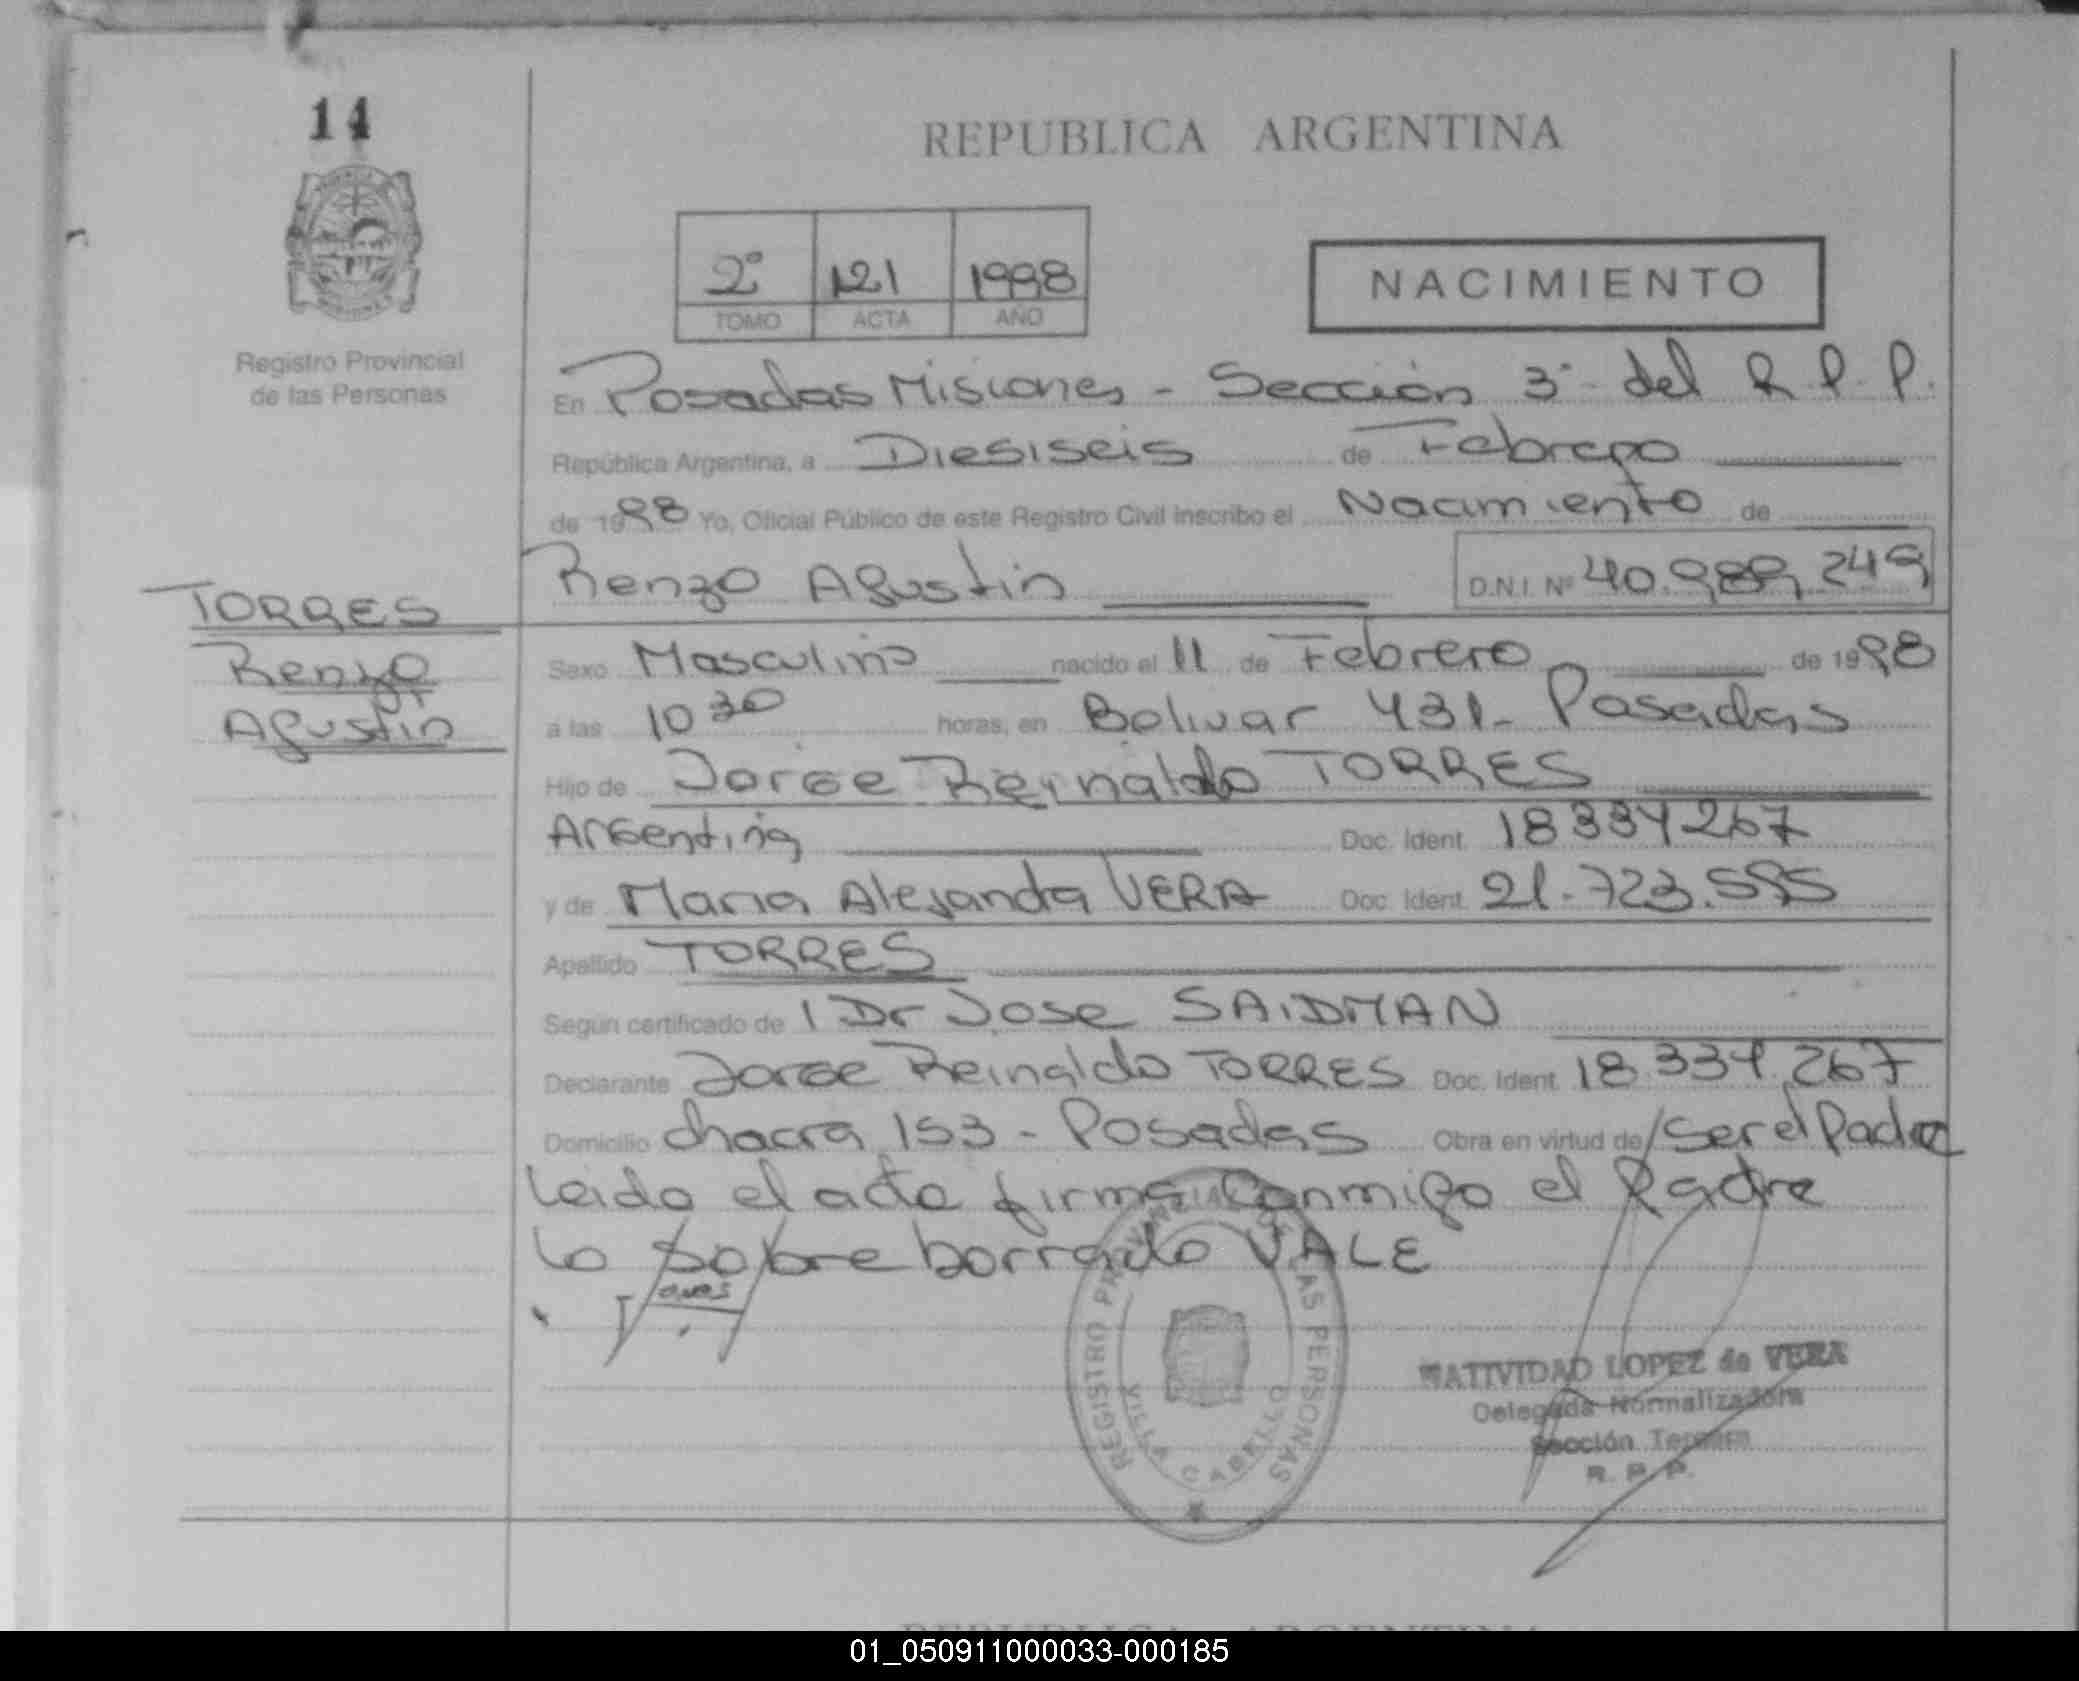 14
REPUBLICA ARGENTINA
2º 121 1998
TOMO ACTA AÑO
NACIMIENTO
Registro Provincial
de las Personas
En Posadas Misiones - Sección 3ª del R.P.P.
República Argentina, a Diesiseis de Febrero
de 1998 Yo, Oficial Público de este Registro Civil inscribo el Nacimiento de
Renzo Agustin D.N.I. Nº 40.989.249
TORRES
Renzo
Agustin
Sexo Masculino nacido el 11 de Febrero de 1998
a las 10 30 horas, en Bolivar 431- Posadas
Hijo de Jorge Reinaldo TORRES
Argentina Doc. Ident. 18.334.267
y de Maria Alejandra VERA Doc. Ident. 21.723.595
Apellido TORRES
Según certificado de 1 Dr Jose SAIDMAN
Declarante Jorge Reinaldo TORRES Doc. Ident. 18.334.267
Domicilio chacra 153 - Posadas Obra en virtud de /ser el Padre
Leido el acta firma Conmigo el Padre
Lo sobre borrado VALE
REGISTRO PROVINCIAL DE LAS PERSONAS
VILLA CABELLO
NATIVIDAD LOPEZ de VERA
Delegada Normalizadora
Sección Tercera
R. P. P.
REPUBLICA ARGENTINA
01_050911000033-000185